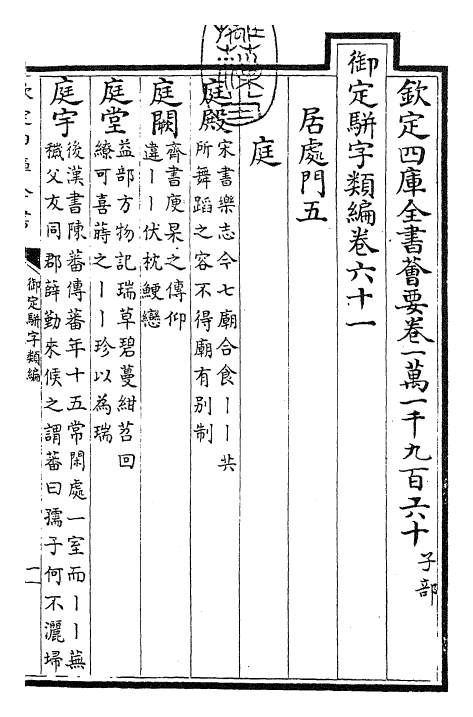 欽定四庫全書薈要卷一萬一千九百六十 子部
御定駢字類編卷六十一
居處門五
庭
庭殿 宋書樂志今七廟合食丨丨共
所舞蹈之容不得廟有别制
庭闕 齊書庾杲之傳仰
違丨丨伏枕鯁戀
庭堂 益部方物記瑞草碧蔓紺苕回
繚可喜蒔之丨丨珍以為瑞
庭宇 後漢書陳蕃傳蕃年十五常閑處一室而丨丨蕪
穢父友同郡薛勤來候之謂蕃曰孺子何不灑埽
御定駢字類編
一